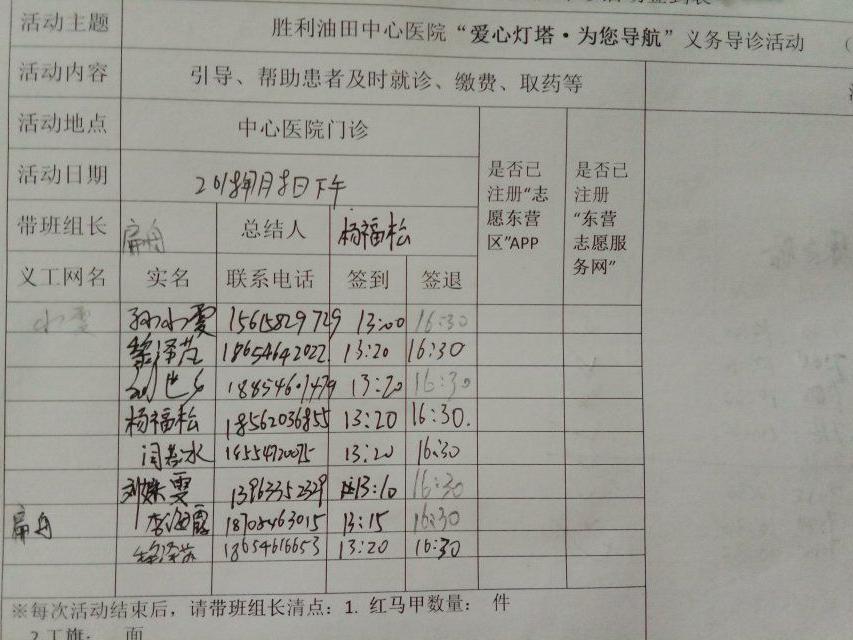 活动主题 胜利油田中心医院“爱心灯塔·为您导航”义务导诊活动 （
活动内容 引导、帮助患者及时就诊、缴费、取药等
活动地点 中心医院门诊
活动日期 2018年1月8日下午
是否已注册“志愿东营区”APP
是否已注册“东营志愿服务网”
带班组长 扁舟 总结人 杨福松
义工网名 实名 联系电话 签到 签退
小雯 孙小雯 15615829729 13:00 16:30
黎泽 18654642022 13:20 16:30
刘 18854607479 13:20 16:30
杨福松 18562036855 13:20 16:30.
闫若水 13:20 16:30
刘姝雯 13963352329 13:10 16:30
扁舟 李海霞 18705463015 13:15 16:30
泽 18654616653 13:20 16:30
※每次活动结束后，请带班组长清点：1. 红马甲数量： 件
2.工旗： 面